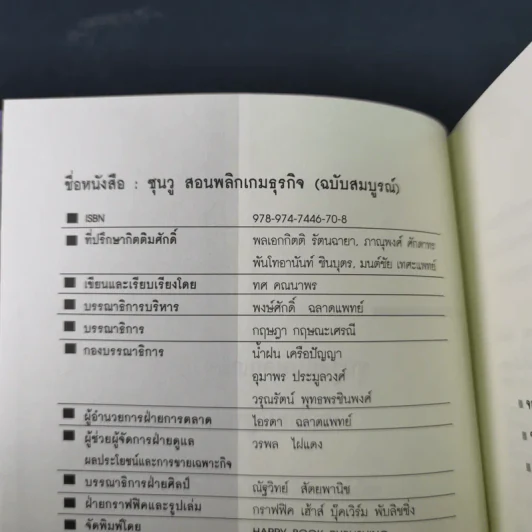 ชื่อหนังสือ : ซุนวู สอนพลิกเกมธุรกิจ (ฉบับสมบูรณ์)
■ ISBN 978-974-7446-70-8
■ ที่ปรึกษากิตติมศักดิ์ พลเอกกิตติ รัตนฉายา, ภาณุพงศ์
พันโทอานันท์ ชินบุตร, มนต์ชัย เทศะแพทย์
■ เขียนและเรียบเรียงโดย ทศ คณนาพร
■ บรรณาธิการบริหาร พงษ์ศักดิ์ ฉลาดแพทย์
■ บรรณาธิการ กฤษฎา กฤษณะเศรณี
■ กองบรรณาธิการ น้ำฝน เครือปัญญา
อุมาพร ประมูลวงศ์
วรุณรัตน์ พุทธพรชินพงศ์
■ ผู้อำนวยการฝ่ายการตลาด ไอรดา ฉลาดแพทย์
■ ผู้ช่วยผู้จัดการฝ่ายดูแล วรพล ไฝแดง
ผลประโยชน์และการขายเฉพาะกิจ
■ บรรณาธิการฝ่ายศิลป์ ณัฐวิทย์ สัตยพานิช
■ ฝ่ายกราฟฟิคและรูปเล่ม กราฟฟิค เฮ้าส์ บุ๊คเวิร์ม พับลิชชิ่ง
■ จัดพิมพ์โดย HAPPY BOOK PUBLISHING